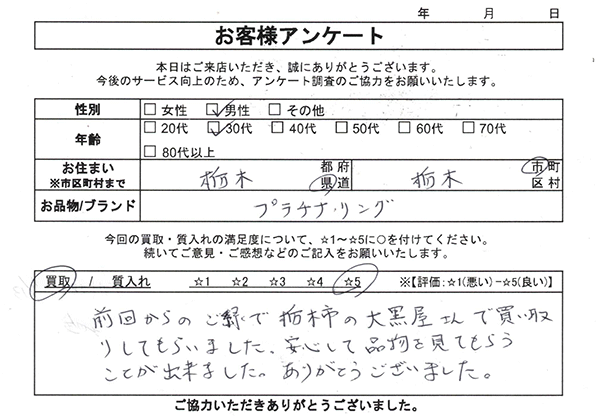 年 月 日
お客様アンケート
本日はご来店いただき、誠にありがとうございます。
今後のサービス向上のため、アンケート調査のご協力をお願いいたします。
性別 □ 女性 ☑ 男性 □ その他
年齢 □ 20代 ☑ 30代 □ 40代 □ 50代 □ 60代 □ 70代
□ 80代以上
お住まい ※市区町村まで 栃木 都 府 県 道 栃木 市 町 区 村
お品物/ブランド プラチナ・リング
今回の買取・質入れの満足度について、☆1～☆5に○を付けてください。
続いてご意見・ご感想などのご記入をお願いいたします。
買取 / 質入れ ☆1 ☆2 ☆3 ☆4 ☆5 ※【評価:☆1(悪い)-☆5(良い)】
前回からのご縁で栃木市の大黒屋さんで買い取
りしてもらいました、安心して品物を見てもらう
ことが出来ました。ありがとうございました。
ご協力いただきありがとうございました。